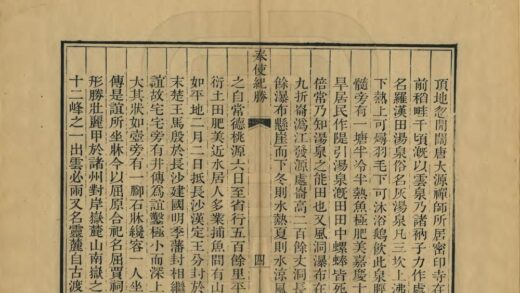 頂地忽開闢唐大源禪師所居密印寺在
前稻畦千頃溉以雲泉乃諸衲子力作處
名羅漢田湯泉俗名灰湯泉凡三坎上沸
下熱上可燖羽毛下可沐浴鵞飲此泉脛
髓旁有一塘半冷半熱魚極肥美嘉慶十
旱居民作隄引湯泉溉田田中螺蜯皆死
倍常乃知湯泉之能田也又風洞瀑布在
九折崙溈江發源處崙高二百餘丈洞長
餘瀑布懸崖而下冬則水熱夏則水涼風
奉使紀勝
四
之自常德桃源六日至省行五百餘里平
衍土田肥美近水居人多業捕魚間有山
如平地二月二日抵長沙漢定王分封於
末楚王馬殷於長沙建國明季藩封相繼
誼故宅宅旁有井傳為誼鑿極小而深上
大其狀如壺旁有一腳石牀纔客一人坐
傳是誼所坐牀今以屈原合祀名屈賈祠
形勝壯麗甲於諸州對岸嶽麓山南嶽之
十二峰之一出雲必雨又名靈麓自古渡